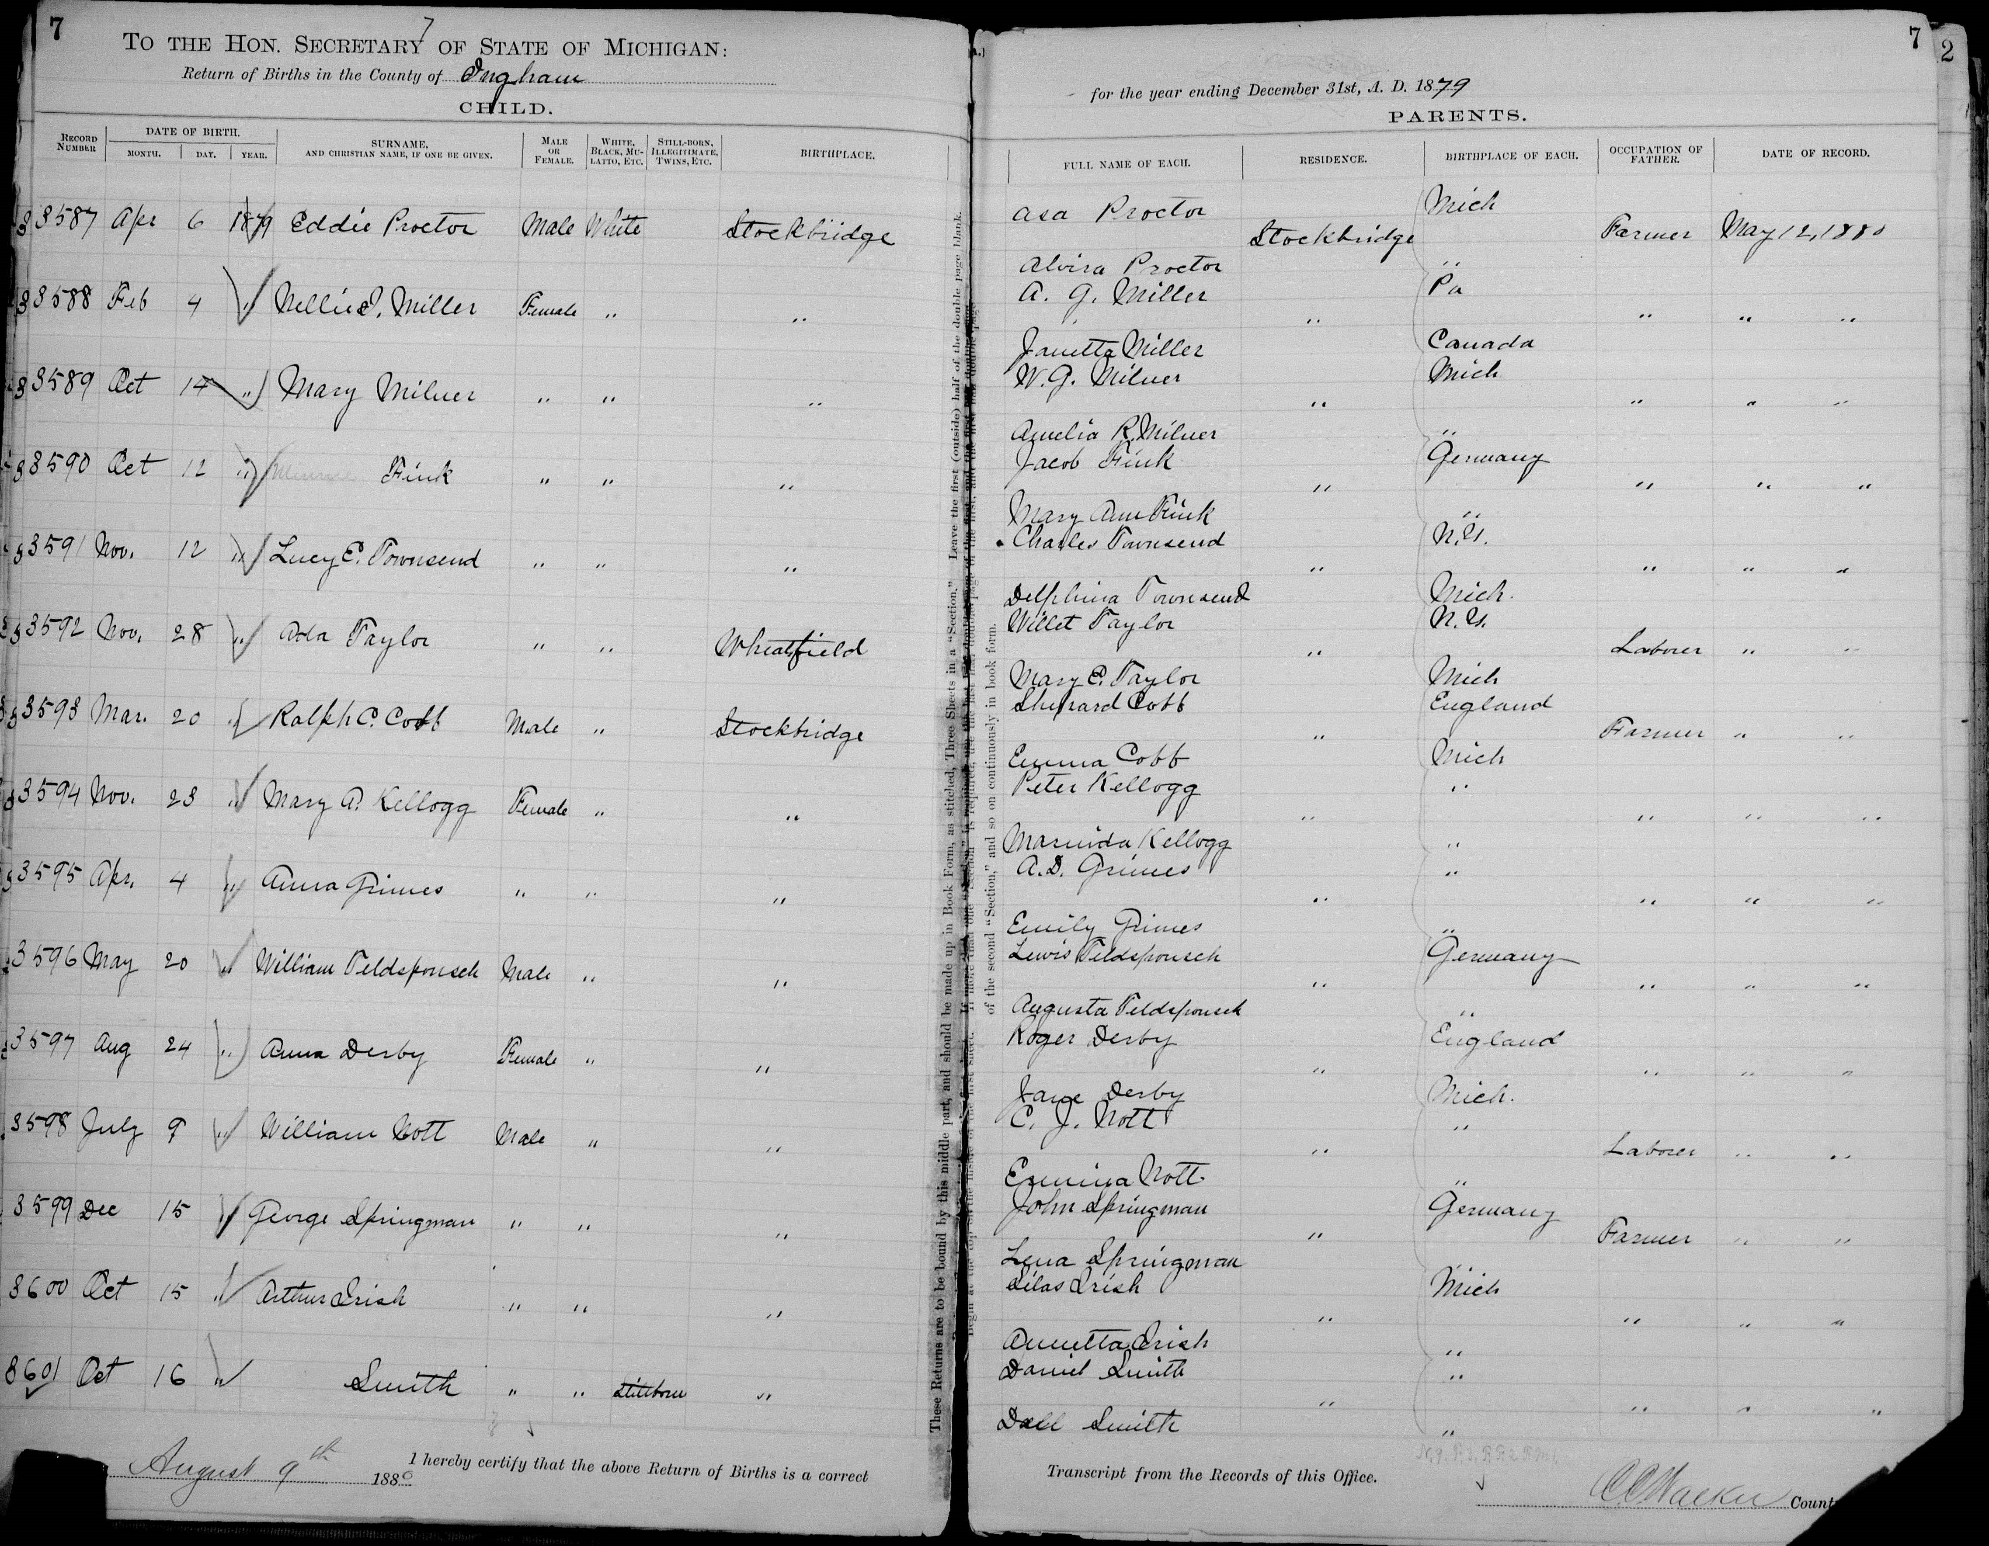 7
7
TO THE HON. SECRETARY OF STATE OF MICHIGAN:
Return of Births in the County of Ingham
CHILD.
RECORD NUMBER
DATE OF BIRTH.
MONTH. DAY. YEAR.
SURNAME, AND CHRISTIAN NAME, IF ONE BE GIVEN.
MALE OR FEMALE.
WHITE, BLACK, MULATTO, ETC.
STILL-BORN, ILLEGITIMATE, TWINS, ETC.
BIRTHPLACE.
3587 Apr 6 1879 Eddie Proctor Male White Stockbridge
3588 Feb 4 " Nellie I. Miller Female " "
3589 Oct 14 " Mary Milner " " "
3590 Oct 12 " Fink " " "
3591 Nov. 12 " Lucy E. Townsend " " "
3592 Nov. 28 " Ada Taylor " " Wheatfield
3593 Mar. 20 " Ralph C. Cobb Male " Stockbridge
3594 Nov. 23 " Mary A. Kellogg Female " "
3595 Apr. 4 " Anna Grimes " " "
3596 May 20 " William Feldsponsch Male " "
3597 Aug 24 " Anna Derby Female " "
3598 July 9 " William Nott Male " "
3599 Dec 15 " George Springman " " "
3600 Oct 15 " Arthur Irish " " "
3601 Oct 16 " Smith " " Stillborn "
August 9th 1880 I hereby certify that the above Return of Births is a correct
These Returns are to be bound by this middle part, and should be made up in Book Form, as stitched, Three Sheets in a "Section." Leave the first (outside) half of the double page blank.
of the second "Section," and so on continuously in book form.
7
2
for the year ending December 31st, A. D. 1879
PARENTS.
FULL NAME OF EACH.
RESIDENCE.
BIRTHPLACE OF EACH.
OCCUPATION OF FATHER.
DATE OF RECORD.
Asa Proctor Mich
Stockbridge Farmer May 12, 1880
Alvira Proctor "
A. G. Miller Pa
" " " "
Janetta Miller Canada
W. G. Milner Mich
" " " "
Amelia R. Milner "
Jacob Fink Germany
" " " "
Mary Ann Fink "
Charles Townsend N.Y.
" " " "
Delphina Townsend Mich.
Willet Taylor N.Y.
" Laborer " "
Mary E. Taylor Mich
Shepard Cobb England
" Farmer " "
Emma Cobb Mich
Peter Kellogg "
" " " "
Marinda Kellogg "
A. D. Grimes "
" " " "
Emily Grimes "
Lewis Feldsponsch Germany
" " " "
Augusta Feldsponsch "
Roger Derby England
" " " "
Jane Derby Mich.
C. J. Nott "
" Laborer " "
Emmina Nott "
John Springman Germany
" Farmer " "
Lena Springman "
Silas Irish Mich
" " " "
Annetta Irish "
Daniel Smith "
" " " "
Dell Smith "
Transcript from the Records of this Office.
Count